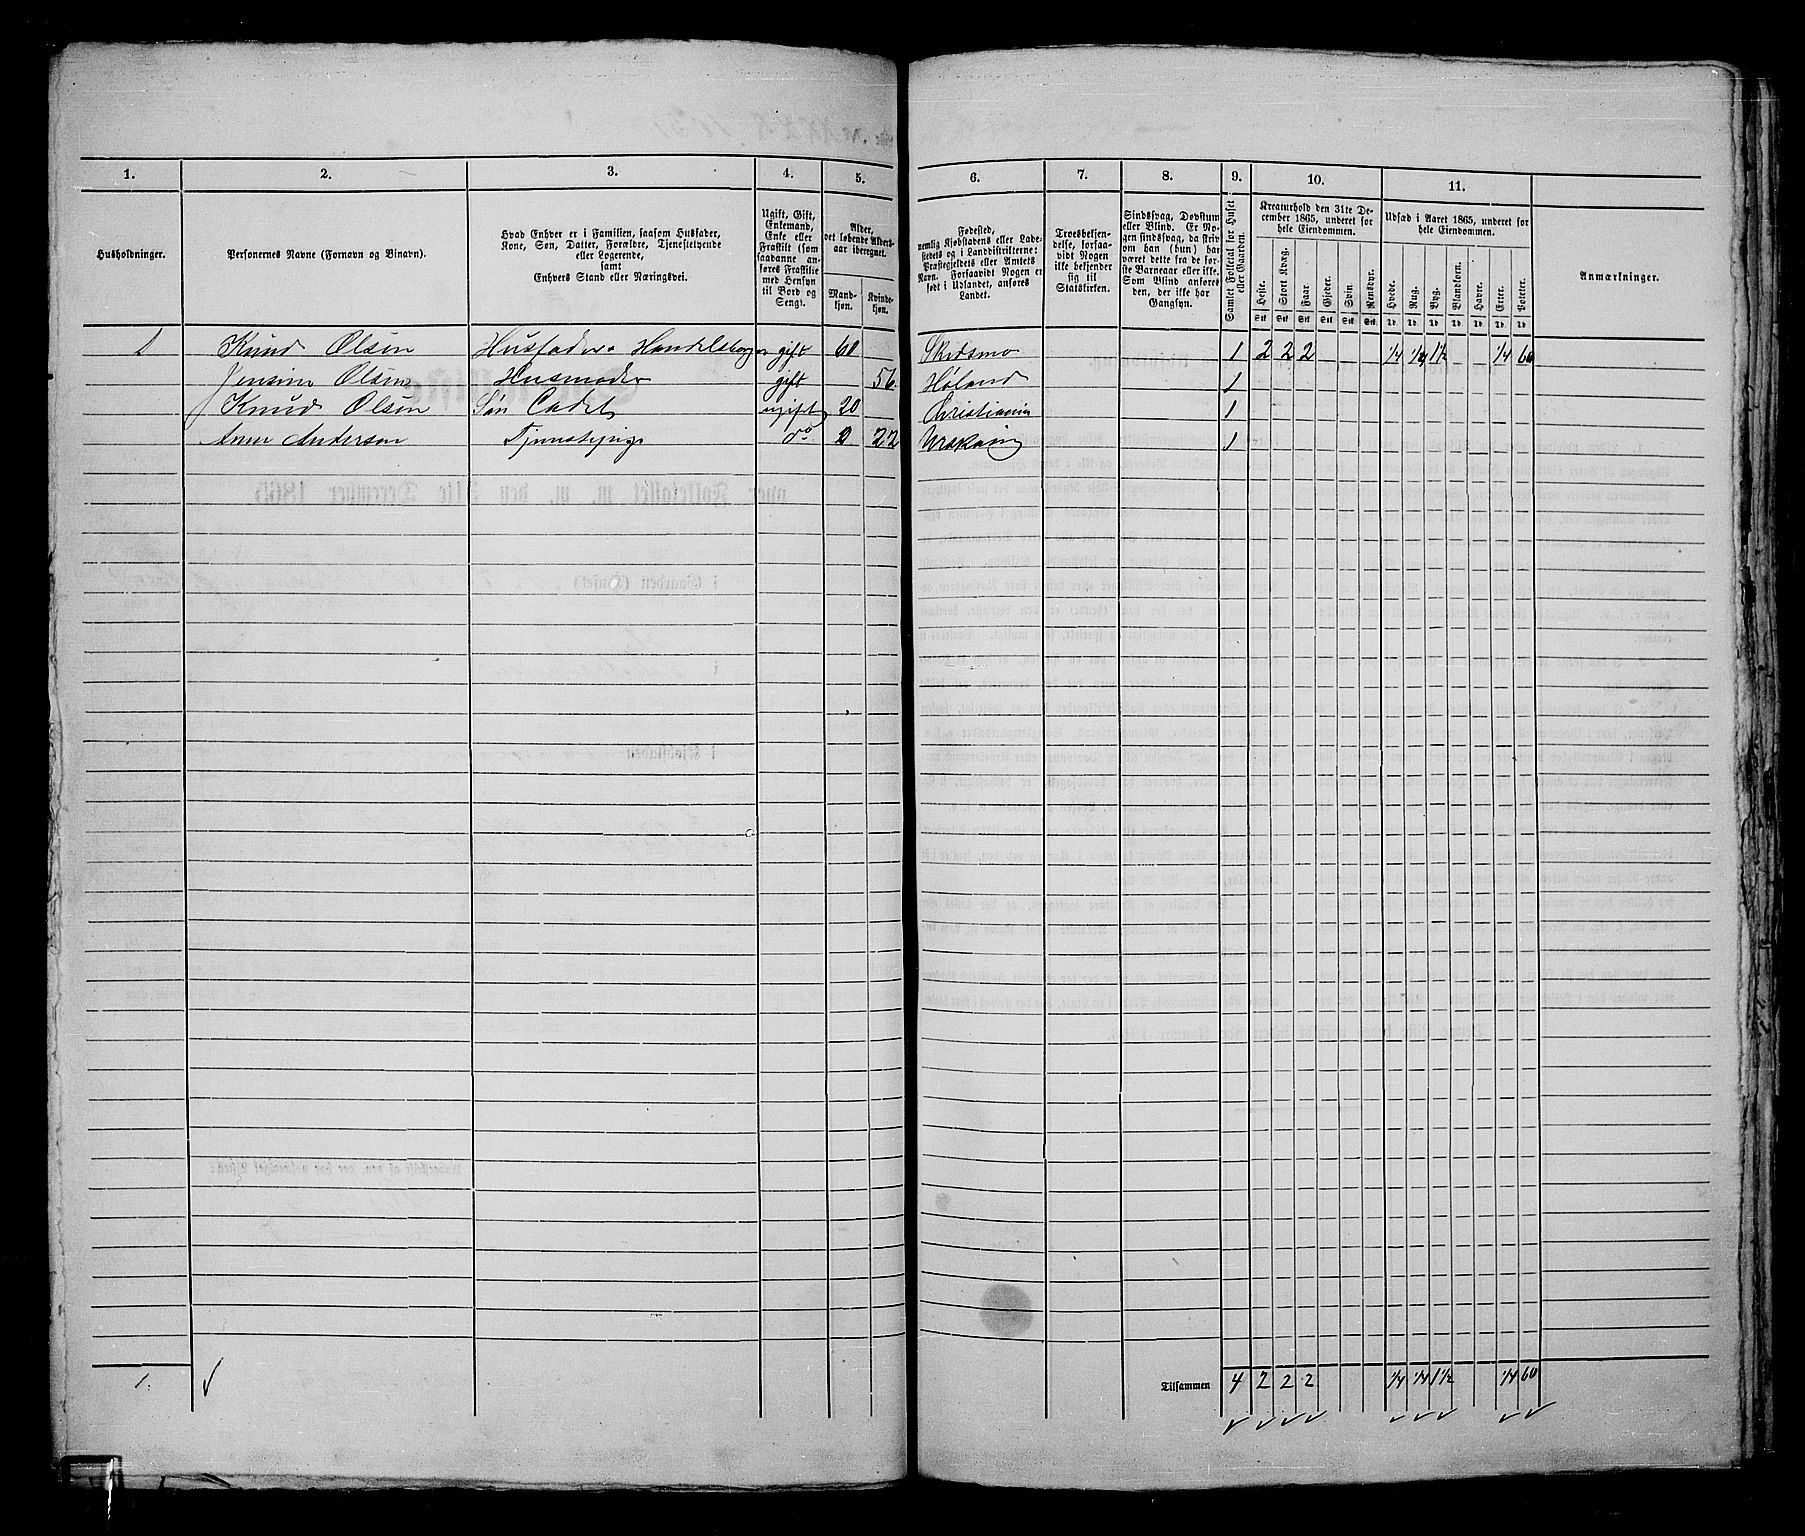 1. 2. 3. 4. 5. 6. 7. 8. 9. 10. 11.
Husholdninger.
Personernes Navne (Fornavn og Binavn).
Hvad Enhver er i Familien, saasom Husfader,
Kone, Søn, Datter, Forældre, Tjenestetyende
eller Logerende,
samt
Enhvers Stand eller Næringsvei.
Ugift, Gift,
Enkemand,
Enke eller
Fraskilt (som
saadanne an-
føres Fraskilte
med Hensyn
til Bord og
Seng).
Alder,
det løbende Alders-
aar iberegnet.
Mand-
kjøn.
Kvinde-
kjøn.
Fødested,
nemlig Kjøbstadens eller Lade-
stedets og i Landdistrikterne:
Præstegjeldets eller Amtets
Navn. Forsaavidt Nogen er
født i Udlandet, anføres
Landet.
Troesbekjen-
delse, forsaa-
vidt Nogen
ikke bekjender
sig til
Statskirken.
Sindssvag, Døvstum
eller Blind. Er No-
gen sindssvag, da skriv
om han (hun) har
været dette fra de før-
ste Barneaar eller ikke.
Som Blind anføres
den, der ikke har
Gangsyn.
Samlet Folketal for Huset
eller Gaarden.
Kreaturhold den 31te De-
cember 1865, underet for
hele Eiendommen.
Heste. Stort Kvæg. Faar. Gjeder. Svin. Rensdyr.
Stk Stk Stk Stk Stk Stk
Udsæd i Aaret 1865, underet for
hele Eiendommen.
Hvede. Rug. Byg. Blandkorn. Havre. Erter. Poteter.
Td. Td. Td. Td. Td. Td. Td.
Anmærkninger.
1 Knud Olsen Husfader Handelsborger gift 60 Skedsmo 1 2 2 2 1/4 1/4 1 1/2 1/4 60
Jensine Olsen Husmoder gift 56 Høland 1
Knud Olsen Søn Cadet ugift 20 Christiania 1
Anne Anderson Tjenestepige do 22 1
1. Tilsammen 4 2 2 2 1/4 1/4 1 1/2 1/4 60